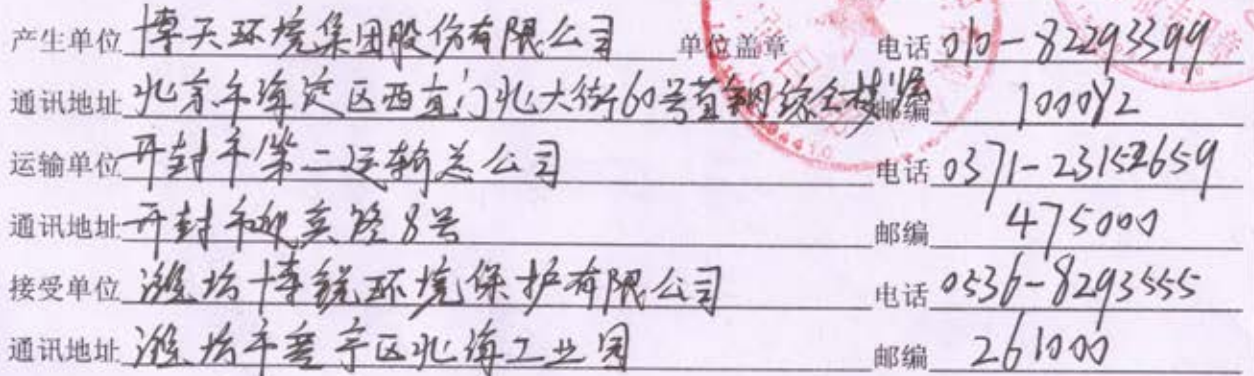 产生单位 博天环境集团股份有限公司 单位盖章 电话 010-82293399
通讯地址 北京市海淀区西直门北大街60号首钢综合楼 邮编 100082
运输单位 开封市第二运输总公司 电话 0371-23152659
通讯地址 开封市迎宾路8号 邮编 475000
接受单位 潍坊博锐环境保护有限公司 电话 0536-8293555
通讯地址 潍坊市寒亭区北海工业园 邮编 261000